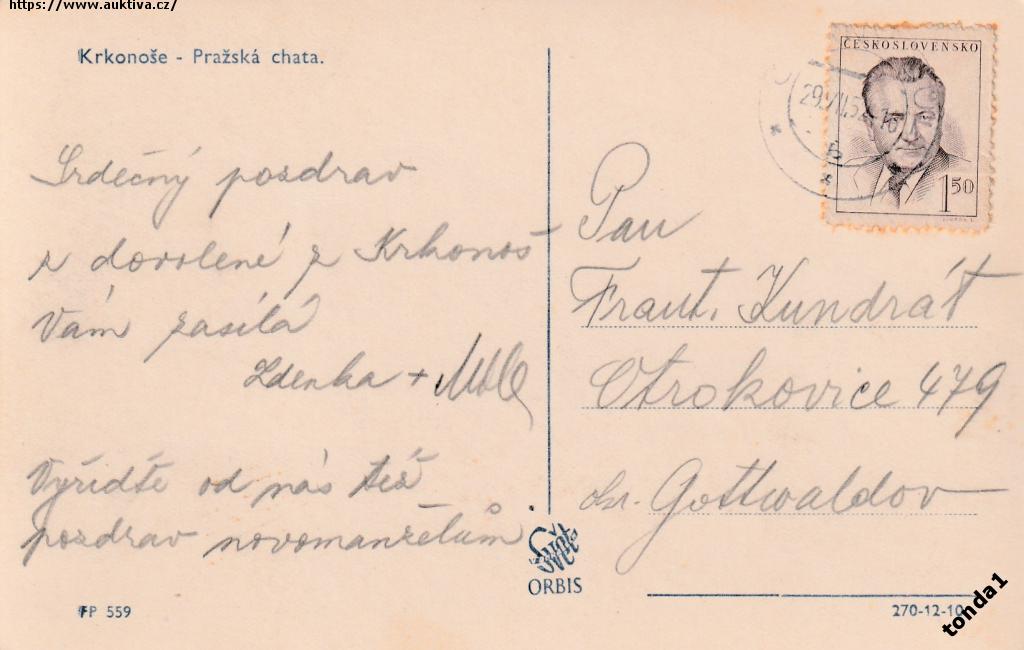 https://www.auktiva.cz/
Krkonoše - Pražská chata.
ČESKOSLOVENSKO
1 50
Srdečný pozdrav
z dovolené z Krkonoš
Vám zasílá
Zdenka +
Vyřidťe od nás též
pozdrav novomanželům
Pan
Frant. Kundrát
Otrokovice 479
okr. Gottwaldov
ORBIS
FP 559
270-12-10
tonda1